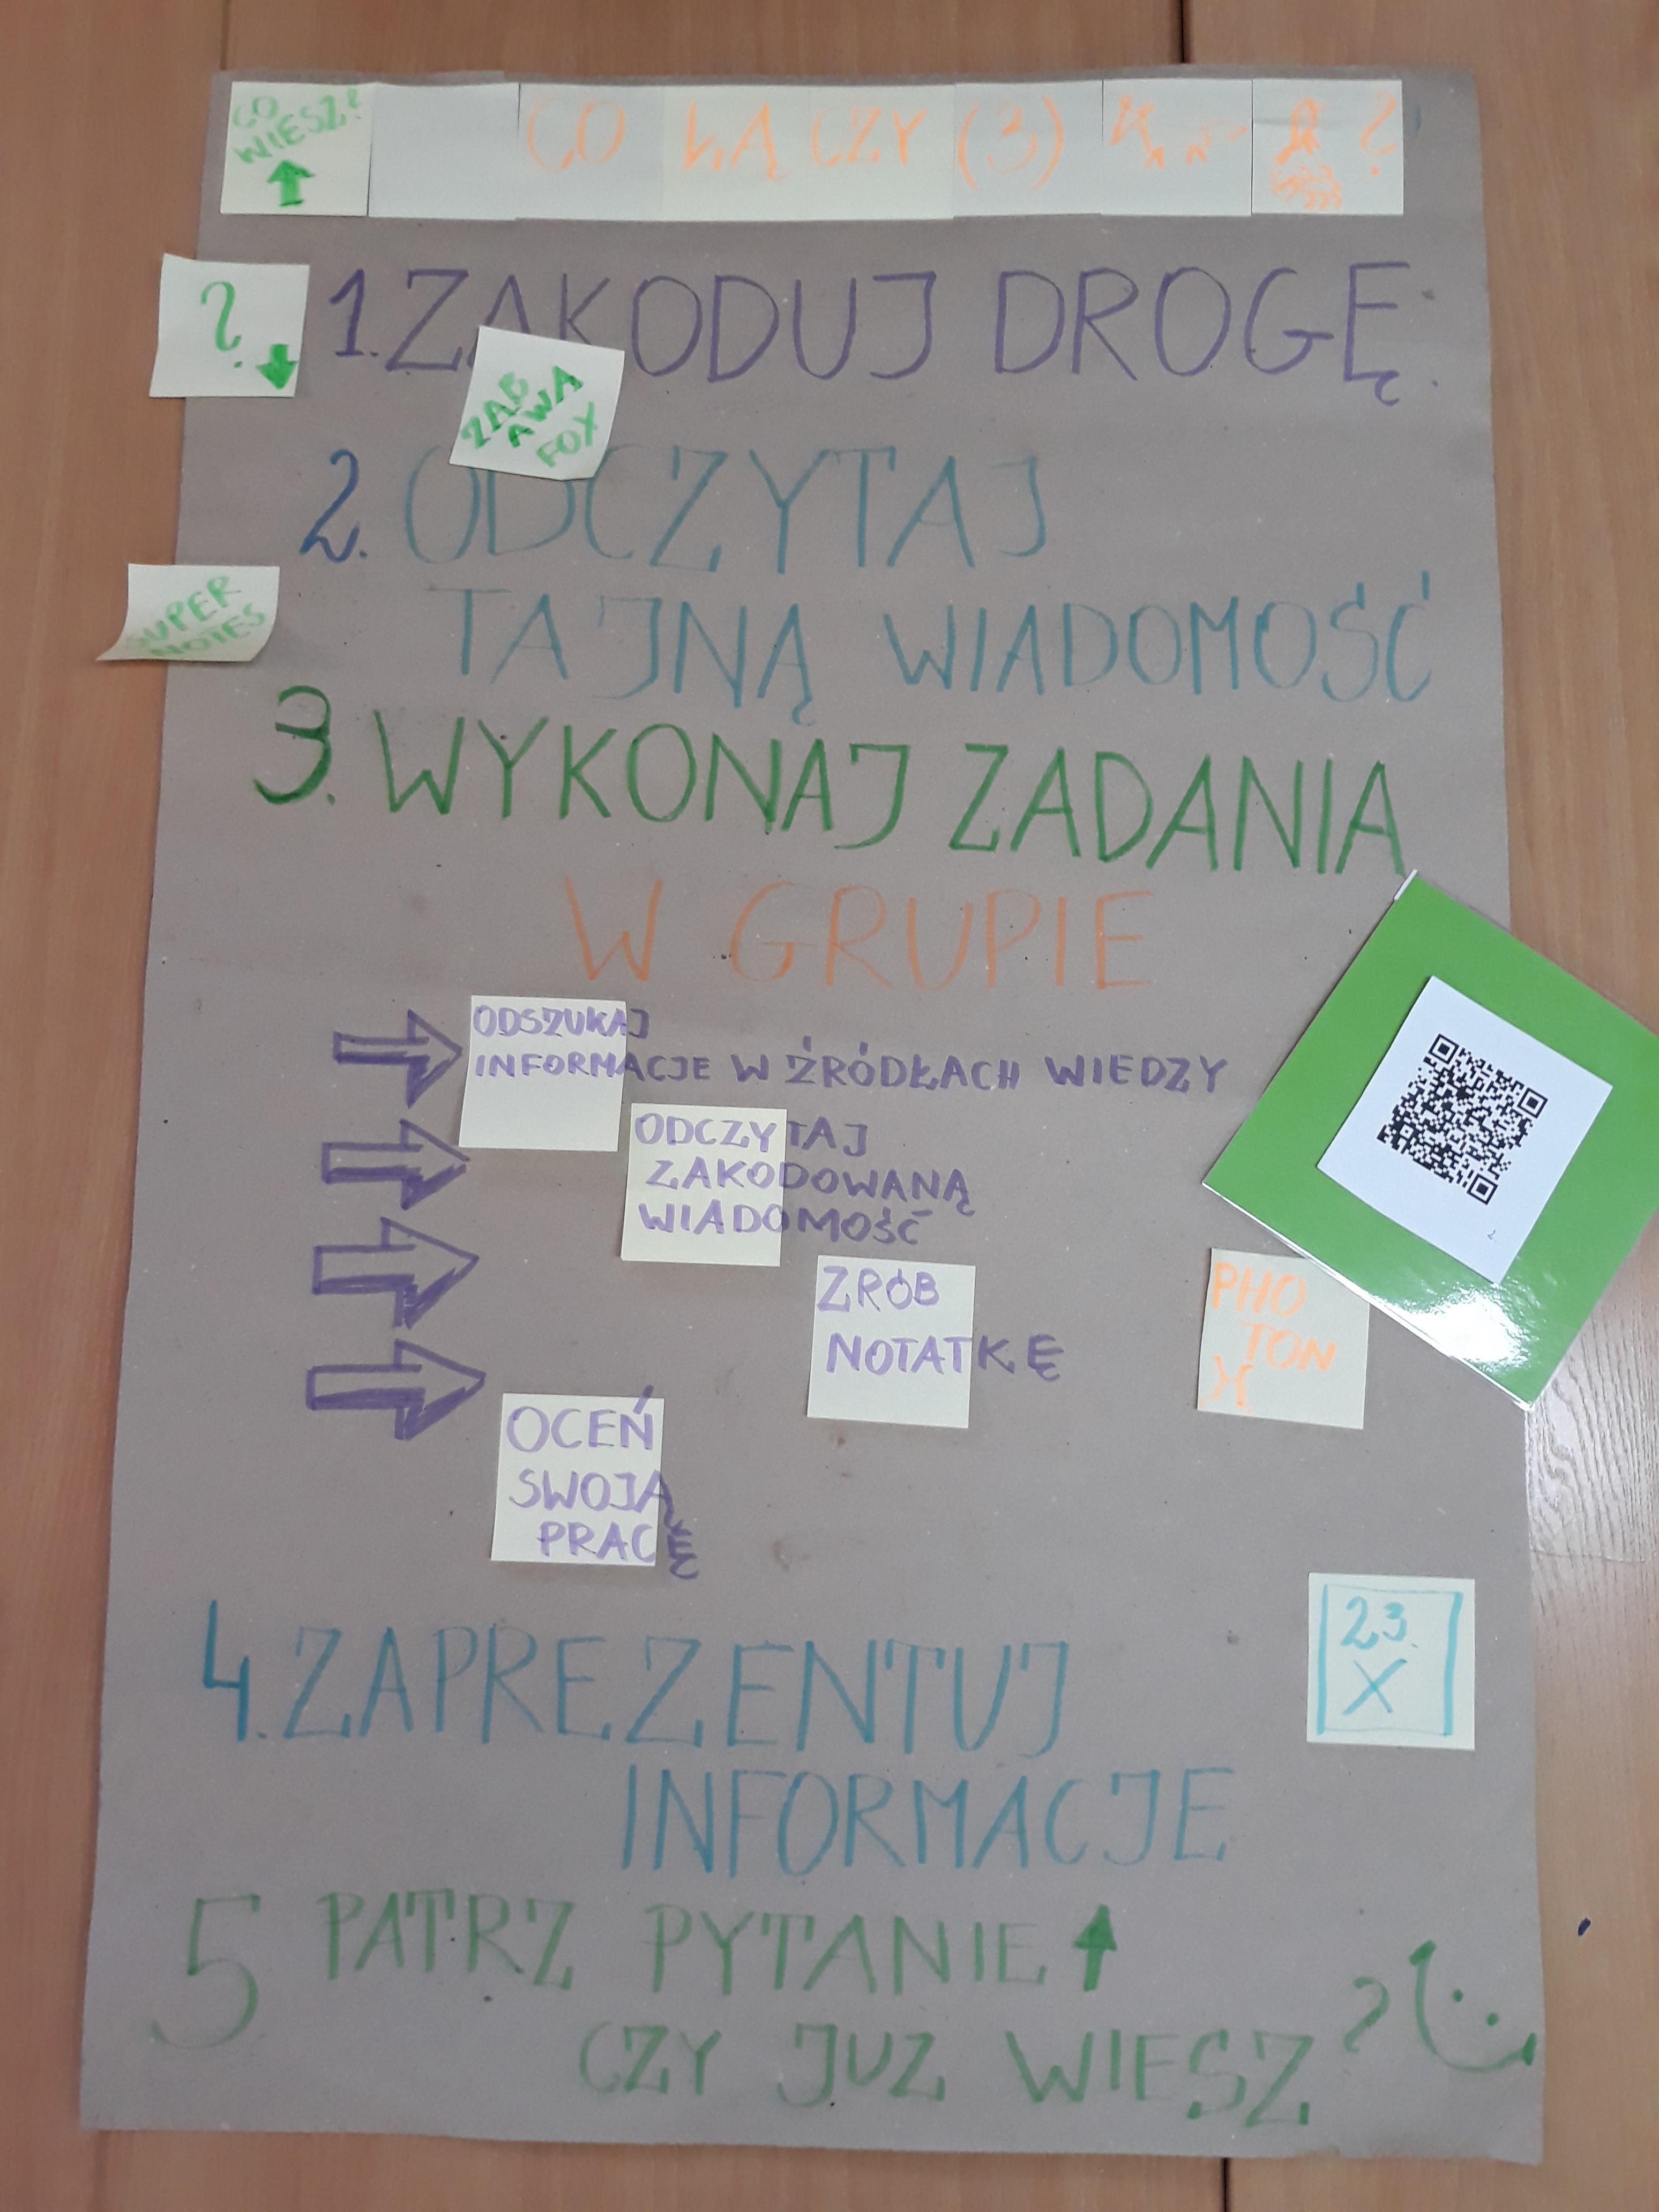 CO
WIESZ?
CO ŁĄCZY (3) ?
?
1. ZAKODUJ DROGĘ.
ZAB
AWA
FOX
2. ODCZYTAJ
TAJNĄ WIADOMOŚĆ
SUPER
NOTES
3. WYKONAJ ZADANIA
W GRUPIE
ODSZUKAJ
INFORMACJE W ŻRÓDŁACH WIEDZY
ODCZYTAJ
ZAKODOWANĄ
WIADOMOŚĆ
2
ZRÓB
NOTATKĘ
PHO
TON
OCEŃ
SWOJĄ
PRACĘ
23.
X
4. ZAPREZENTUJ
INFORMACJE
5 PATRZ PYTANIE
CZY JUZ WIESZ ?